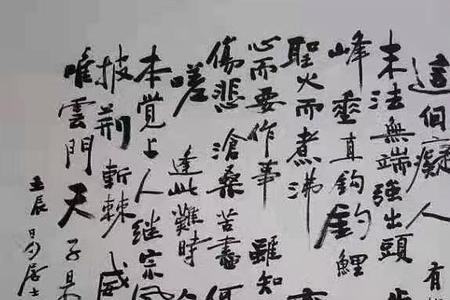 這個癡人有
末法無端強出頭
峰垂直鈎釣鯉
聖火而煮沸
心而要作事 雖知
傷悲滄桑苦盡
嗟 逢此難時
本覺上人继宗風
披荆斬棘威
唯雲門天子是
壬辰 居士